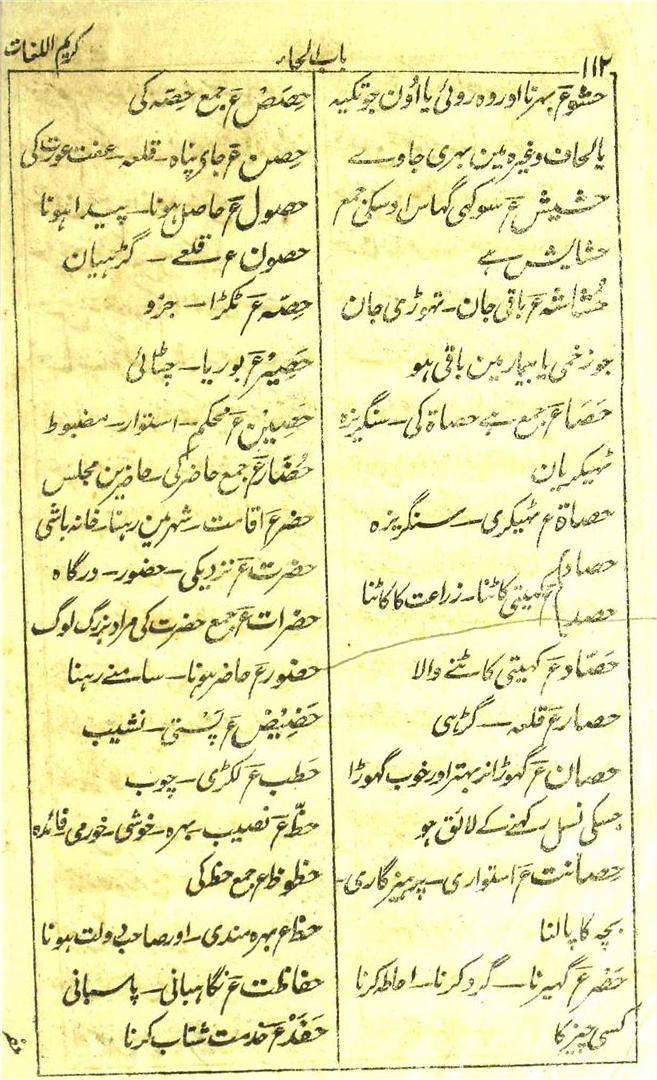 ۱۱۲
باب الحاء
کریم اللغات
حشو ع بہرنا اور وہ روئی یا اون جو تکیہ
یا لحاف وغیرہ مین بہری جاوے
حشیش ع سوکہی گہاس اوسکی جمع
حشایش ہے
حُشاشہ ع باقی جان ۔ تہوڑی جان
جو زخمی یا بیمار مین باقی ہو
حَصَا ع جمع ہے حصاۃ کی ۔ سنگریزہ
ٹہیکریان
حصاۃ ع ٹہیکری ۔ سنگریزہ
حصاد
حصد ع کہیتی کاٹنا ۔ زراعت کا کاٹنا
حَصّاد ع کہیتی کاٹنے والا
حصار ع قلعہ ۔ گڑہی
حصان ع گہوڑا نر بہتر اور خوب گہوڑا
جسکی نسل رکہنے کے لائق ہو
حِصانت ع استواری ۔ پرہیزگاری ۔
بچہ کا پالنا
حَصْر ع گہیرنا ۔ گرد کرنا ۔ احاطہ کرنا
کسی چیز کا
حِصَصْ ع جمع حِصّہ کی
حِصن ع جای پناہ ۔ قلعہ ۔ عفت عورت کی
حصول ع حاصل ہونا ۔ پیدا ہونا
حصون ع قلعے ۔ گڑہیان
حِصّہ ع ٹکڑا ۔ جزو
حَصِیْر ع بوریا ۔ چٹائی
حَصِیْن ع محکم ۔ استوار ۔ مضبوط
حُضّار ع جمع حاضر کی ۔ حاضرین مجلس
حضر ع اقامت ۔ شہر مین رہنا ۔ خانہ باشی
حضرت ع نزدیکی ۔ حضور ۔ درگاہ
حضرات ع جمع حضرت کی مراد بزرگ لوگ
حضور ع حاضر ہونا ۔ سامنے رہنا
حَضِیْض ع پَستی ۔ نشیب
حَطب ع لکڑی ۔ چوب
حظّ ع نصیب ۔ بہرہ ۔ خوشی ۔ خورمی فائدہ
حظوظ ع جمع حظ کی
حظ ع بہرہ مندی ۔ اور صاحب دولت ہونا
حفاظت ع نگاہبانی ۔ پاسبانی
حَفَدْ ع خدمت شتاب کرنا